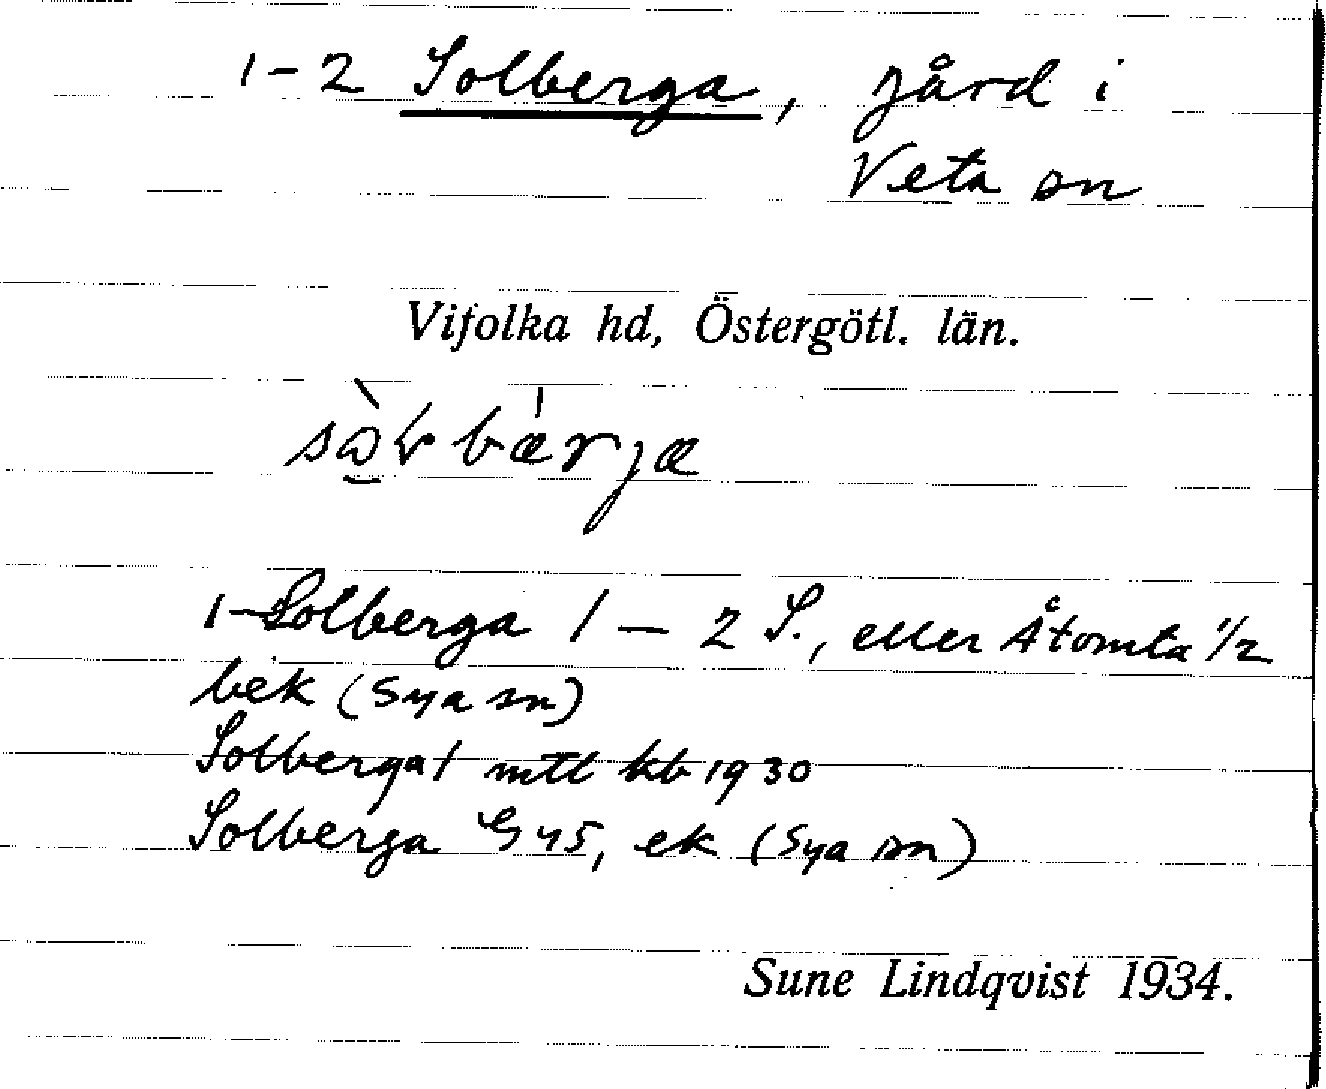 1-2 Solberga, gård i
Veta sn
Vifolka hd, Östergötl. län.
1-Solberga 1 — 2 S., eller Åtomta 1/2
bek (Sya sn)
Solberga 1 mtl kb 1930
Solberga G45, ek (Sya sn)
Sune Lindqvist 1934.